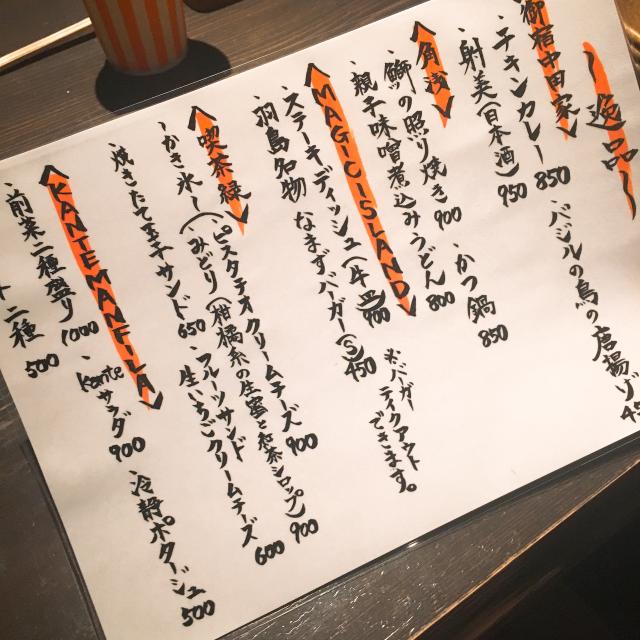 一逸品一
御宿中田家
・チキンカレー 850
・バジルの鳥の唐揚げ
・射美(日本酒) 950
角波
・鰤の照り焼き 900
・かつ鍋 850
・親子味噌煮込みうどん 800
MAGICISLAND
・ステーキディッシュ(牛 900
※バーガー
テイクアウト
できます。
・羽島名物 なまずバーガー 950
喫茶緑
・かき氷
ピスタチオクリームチーズ 900
みどり(柑橘系の生蜜とお茶シロップ) 900
・焼きたて玉子サンド 650
フルーツサンド
生いちごクリームチーズ 600
KANTEMANFILA
・kanteサラダ 900
・冷静ポタージュ 500
・前菜二種盛り 1000
二種 500